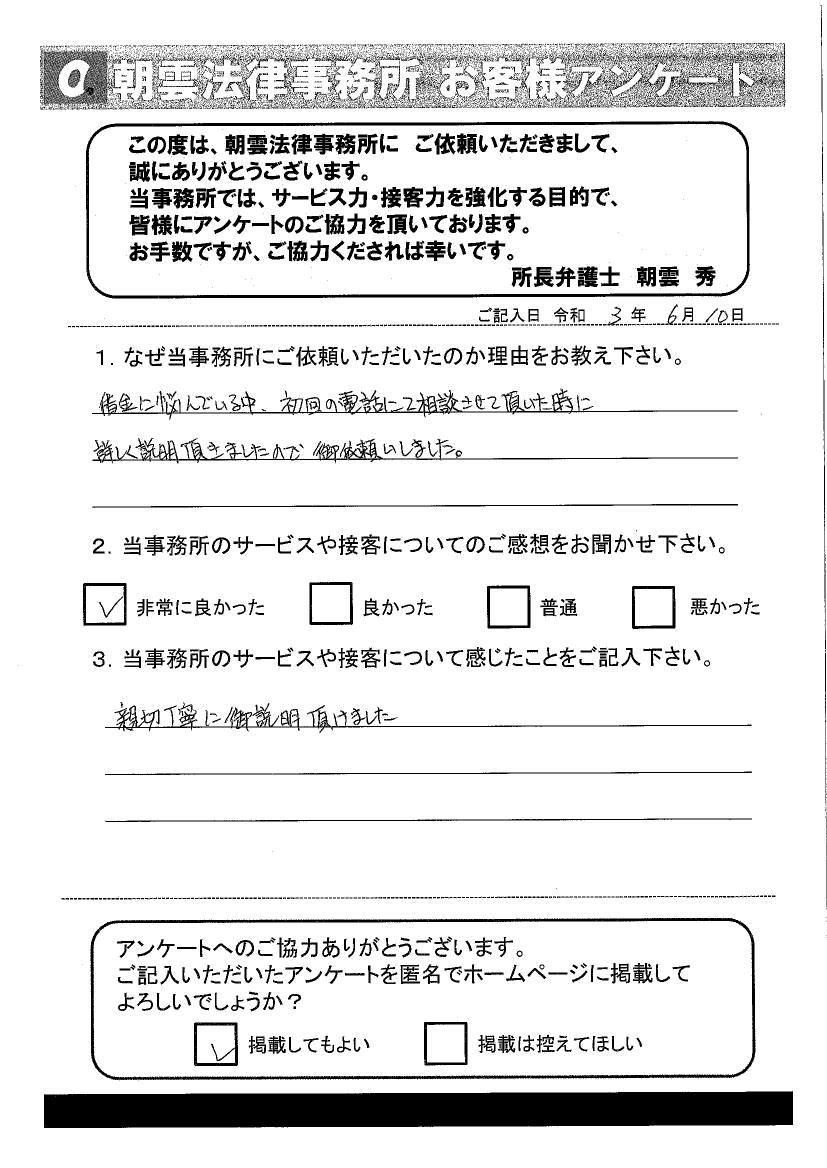 a. 朝雲法律事務所 お客様アンケート
この度は、朝雲法律事務所に ご依頼いただきまして、
誠にありがとうございます。
当事務所では、サービス力・接客力を強化する目的で、
皆様にアンケートのご協力を頂いております。
お手数ですが、ご協力くだされば幸いです。
所長弁護士 朝雲 秀
ご記入日 令和 3 年 6 月 10 日
1. なぜ当事務所にご依頼いただいたのか理由をお教え下さい。
借金に悩んでいる中、初回の電話にて相談させて頂いた時に
詳しく説明頂きましたので御依頼いしました。
2. 当事務所のサービスや接客についてのご感想をお聞かせ下さい。
非常に良かった 良かった 普通 悪かった
3. 当事務所のサービスや接客について感じたことをご記入下さい。
親切丁寧に御説明頂けました
アンケートへのご協力ありがとうございます。
ご記入いただいたアンケートを匿名でホームページに掲載して
よろしいでしょうか？
掲載してもよい 掲載は控えてほしい